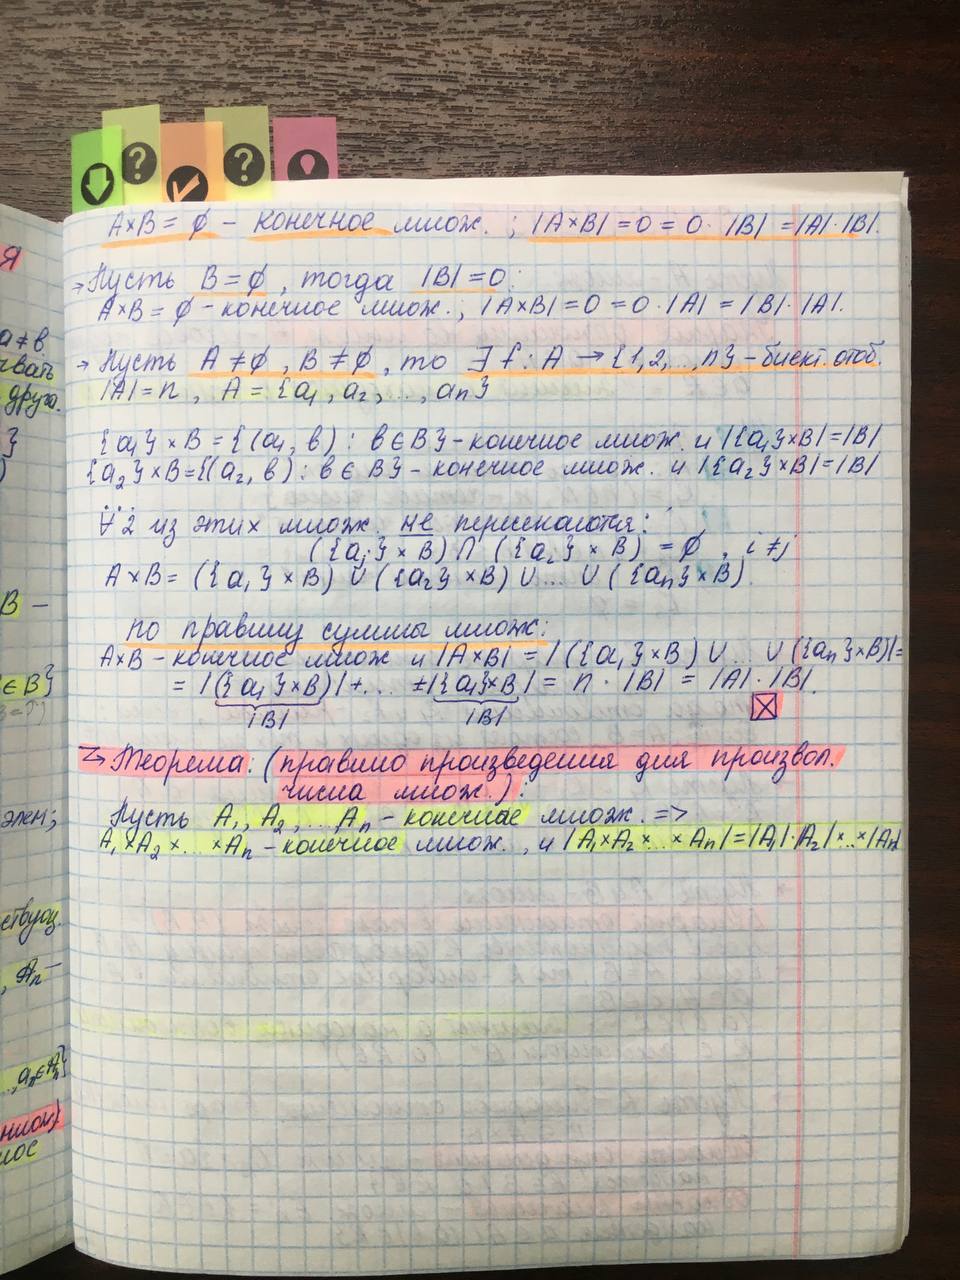 A×B = ∅ – конечное множ. ; |A×B| = 0 = 0 · |B| = |A|·|B|.
→ Пусть B = ∅, тогда |B| = 0:
A×B = ∅ – конечное множ.; |A×B| = 0 = 0·|A| = |B|·|A|.
→ Пусть A ≠ ∅, B ≠ ∅, то ∃ f: A → {1,2,..., n} – биект. отоб.
|A| = n, A = {a₁, a₂, ..., aₙ}
{a₁} × B = {(a₁, в) : в ∈ B} – конечное множ. и |{a₁}×B| = |B|
{a₂} × B = {(a₂, в) : в ∈ B} – конечное множ. и |{a₂}×B| = |B|
∀ 2 из этих множ. не пересекаются:
({aᵢ} × B) ∩ ({a₂} × B) = ∅, i ≠ j
A×B = ({a₁} × B) ∪ ({a₂} × B) ∪ ... ∪ ({aₙ} × B)
по правилу суммы множ:
A×B – конечное множ и |A×B| = |({a₁} × B) ∪ ... ∪ ({aₙ} × B)| =
= |({a₁} × B)| + ... + |{a₁}×B| = n · |B| = |A|·|B|.
|B| |B|
Теорема: (правило произведения для произвол.
числа множ.):
Пусть A₁, A₂, ... Aₙ – конечное множ. =>
A₁×A₂×...×Aₙ – конечное множ., и |A₁×A₂×...×Aₙ| = |A₁|·|A₂|×...×|Aₙ|
я
a ≠ в
друга.
}
)
B –
∈ B}
элем;
ствующ.
, Aₙ –
..., aₙ ∈ Aₙ}